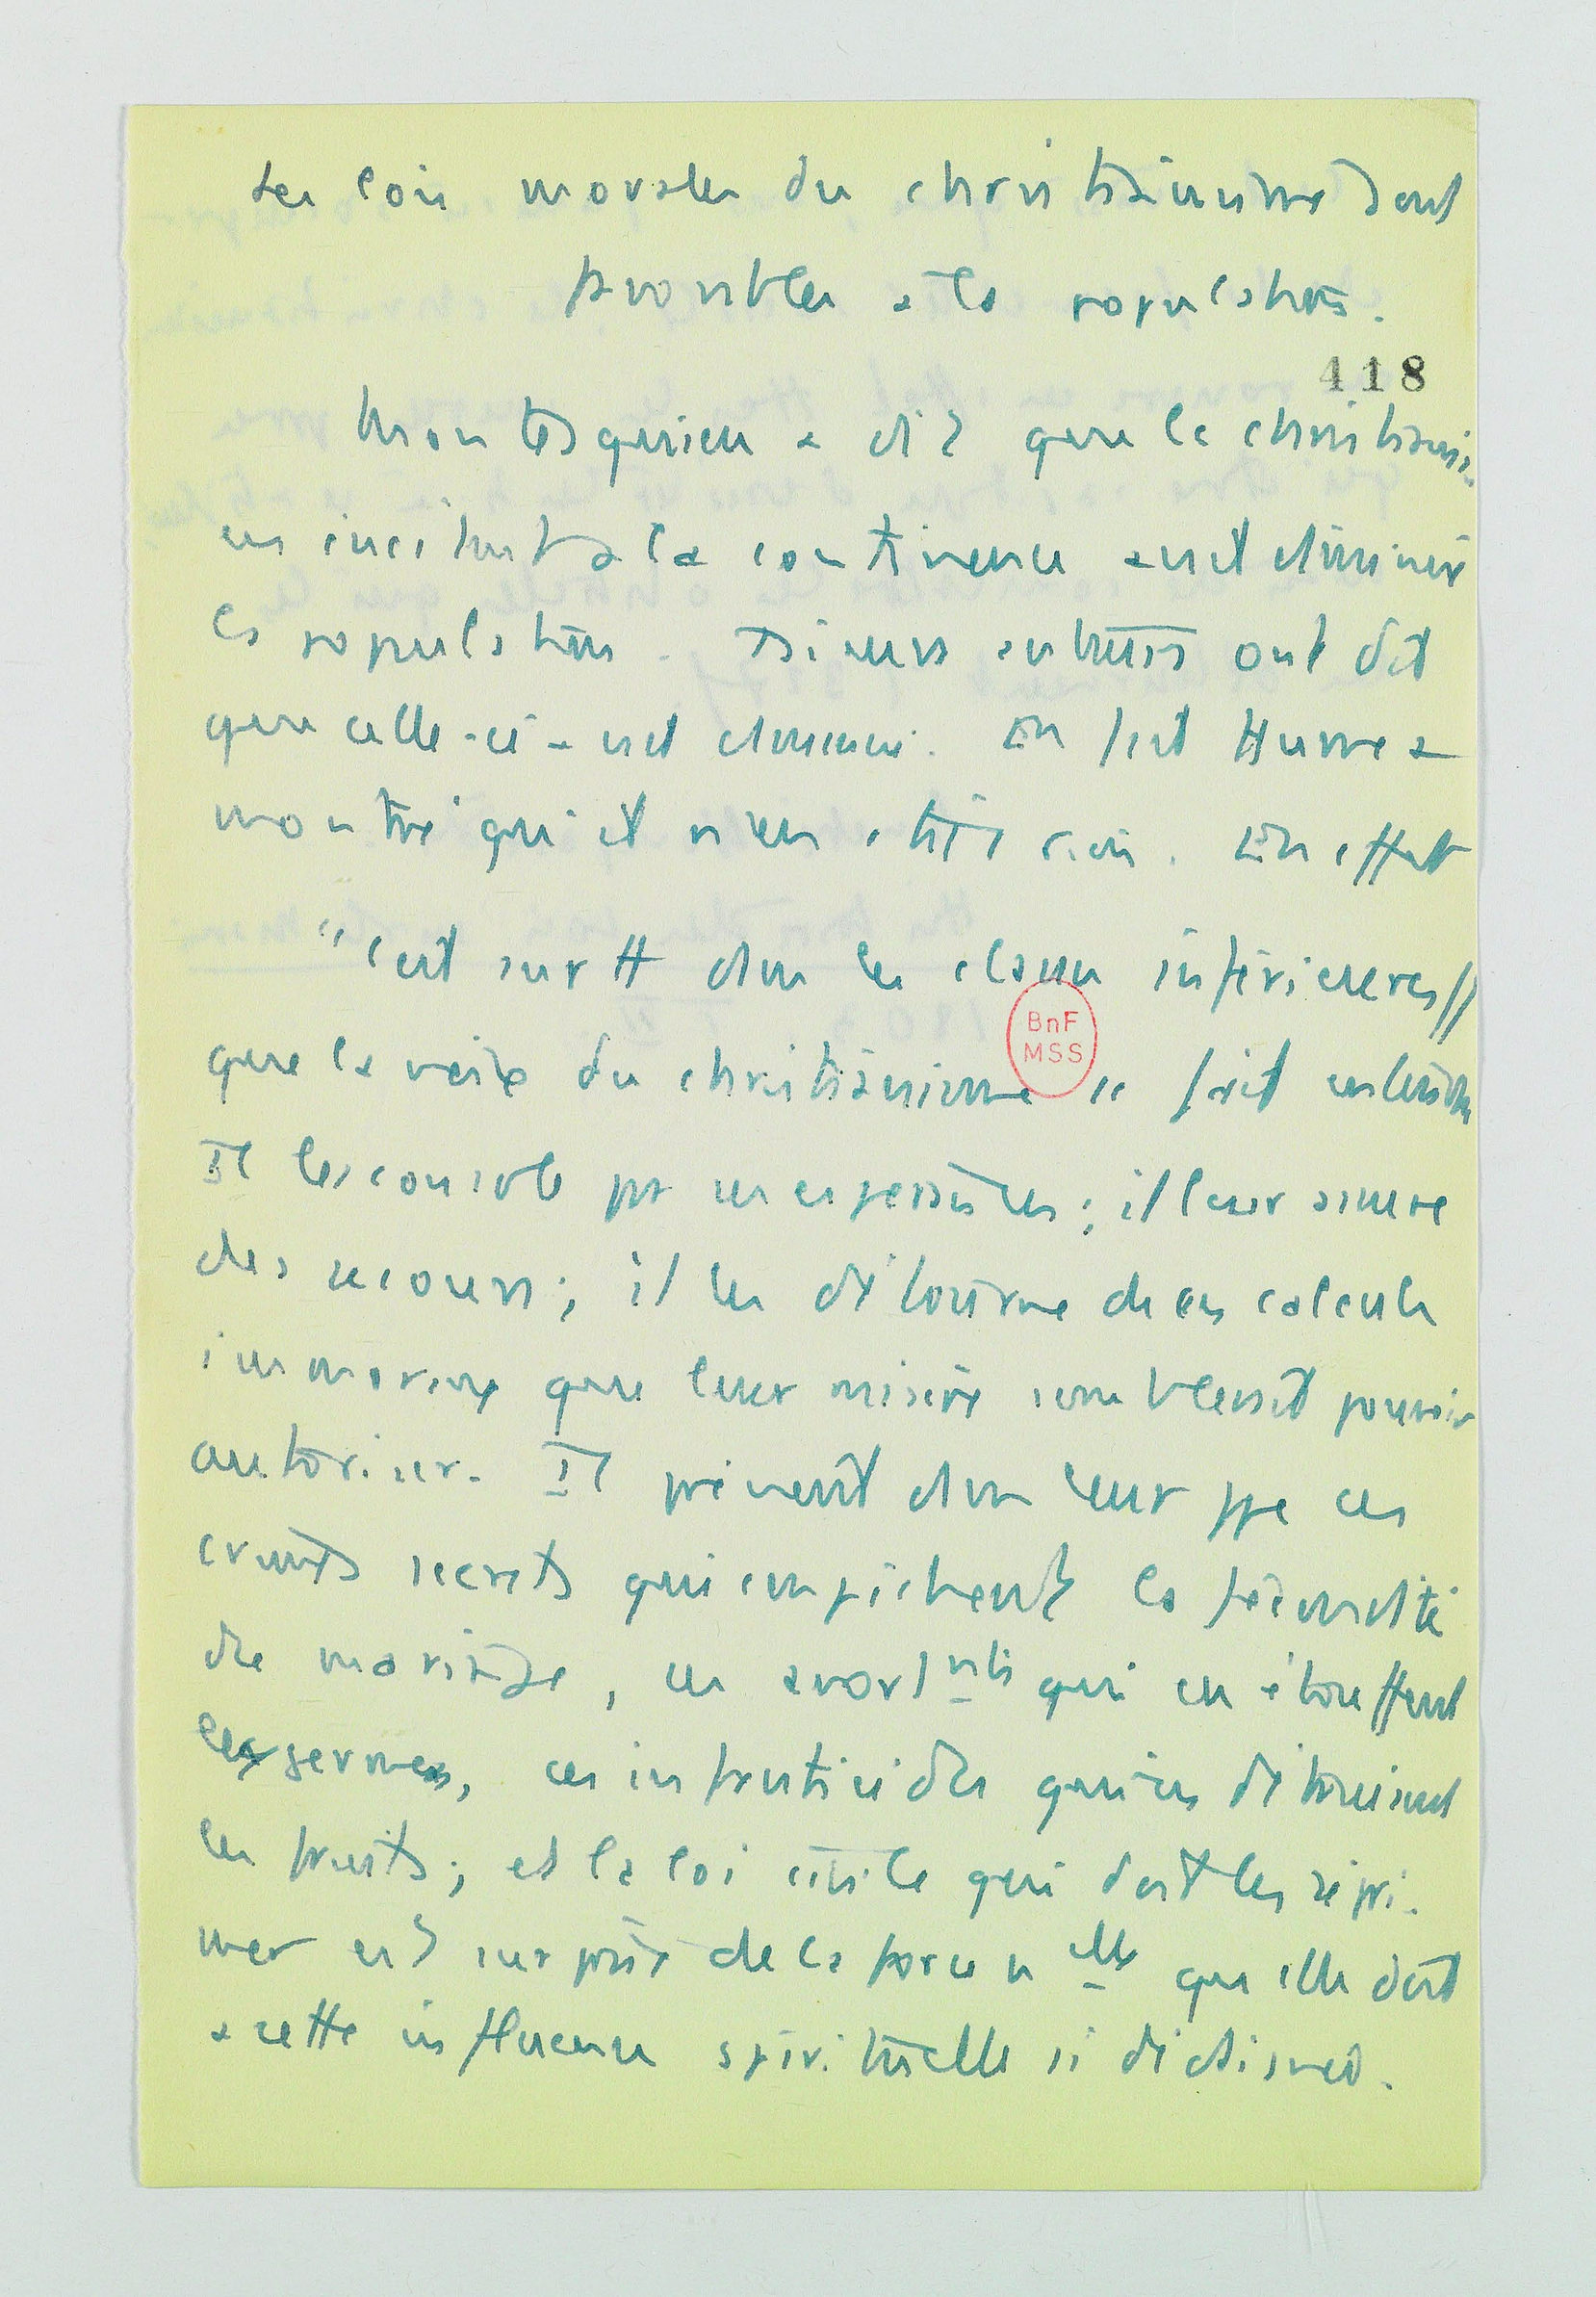 Les lois morales du christianisme sont
favorables a la population.
418
Montesquieu a dit que le christianis.
en incitant a la continence avait diminué
la population. D'autres ont dit
que celle-ci avait diminué. En fait Hume a
montré qu'il n'en était rien. En effet
"c'est surtt dans les classes inférieures //
que la voix du christianisme" fait entendre
Il les console par ses espérances ; il leur assure
des secours ; il les détourne de ces calculs
immoraux que leur misère semblerait pouvoir
autoriser. Il prévient dans leur ppe ces
crimes secrets qui empêchent la fécondité
du mariage, ces avortnts qui en étouffent
les germes, ces infanticides qui en détruisent
les fruits ; et la loi civile qui doit les répri-
mer est surprise de la force nelle qu'elle doit
a cette influence spirituelle si
BnF
MSS